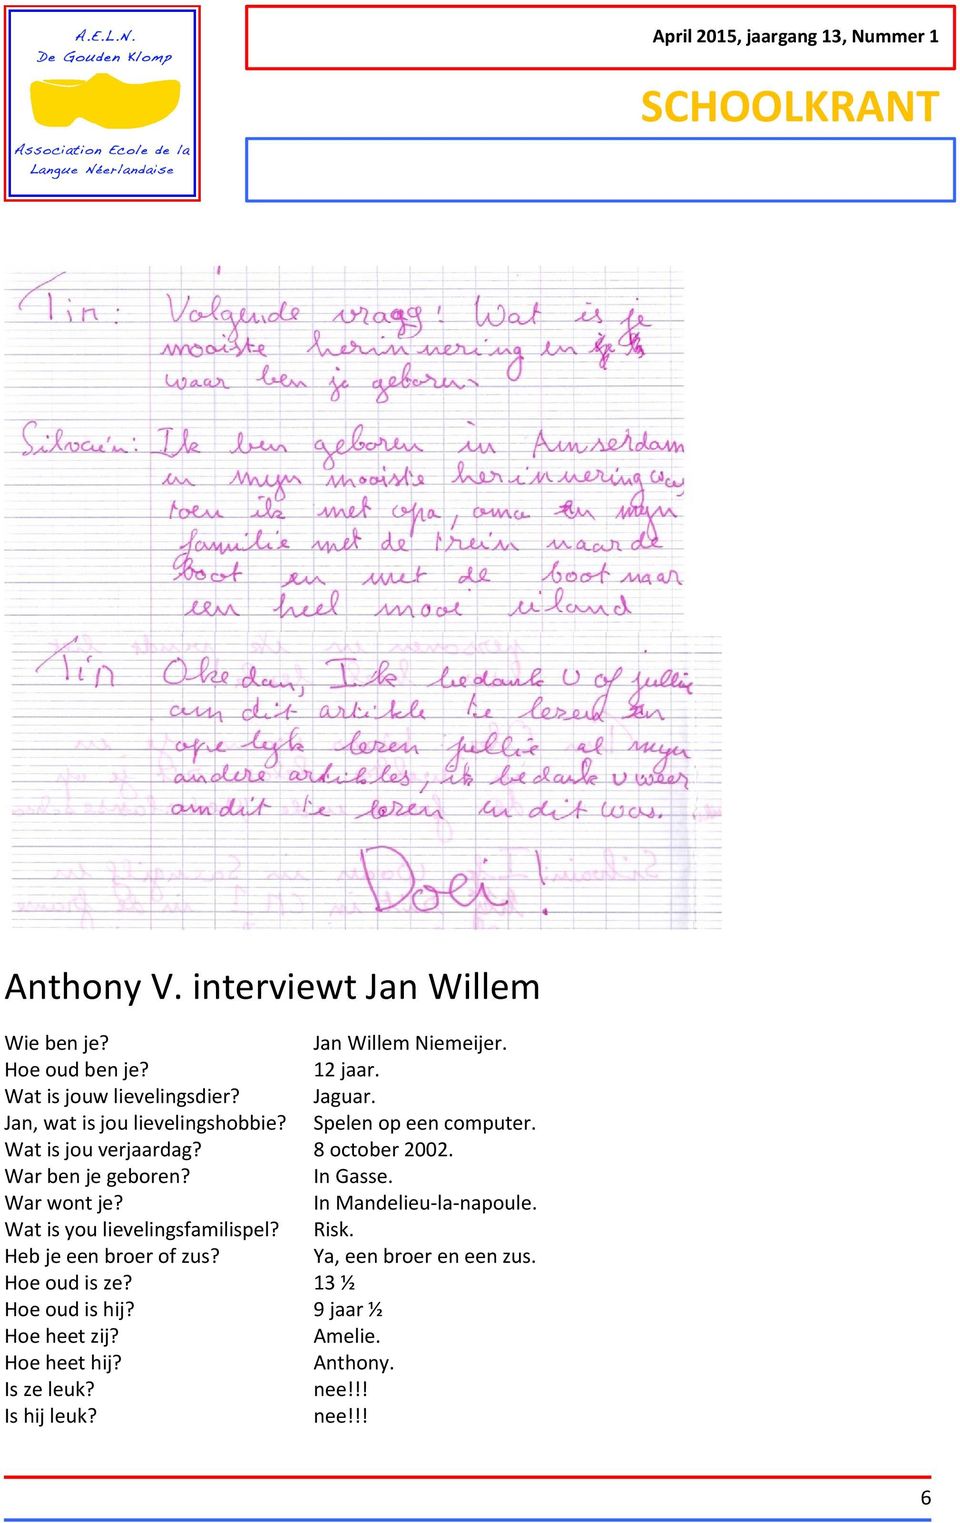 A.E.L.N.
De Gouden Klomp
Association Ecole de la
Langue Néerlandaise
April 2015, jaargang 13, Nummer 1
SCHOOLKRANT
Tin: Volgende vragg! Wat is je
mooiste herinnering en
waar ben je geboren
Silvaén: Ik ben geboren in Amserdam
en mijn mooiste herinnering was
toen ik met opa, oma en mijn
familie met de trein naar de
boot en met de boot naar
een heel mooi eiland
Tin Oke dan, Ik bedank U of jullie
om dit artikle te lezen en
ope lijk lezen jullie al mijn
andere artikles, ik bedank u weer
om dit te lezen en dit was.
Doei!
Anthony V. interviewt Jan Willem
Wie ben je? Jan Willem Niemeijer.
Hoe oud ben je? 12 jaar.
Wat is jouw lievelingsdier? Jaguar.
Jan, wat is jou lievelingshobbie? Spelen op een computer.
Wat is jou verjaardag? 8 october 2002.
War ben je geboren? In Gasse.
War wont je? In Mandelieu-la-napoule.
Wat is you lievelingsfamilispel? Risk.
Heb je een broer of zus? Ya, een broer en een zus.
Hoe oud is ze? 13 ½
Hoe oud is hij? 9 jaar ½
Hoe heet zij? Amelie.
Hoe heet hij? Anthony.
Is ze leuk? nee!!!
Is hij leuk? nee!!!
6